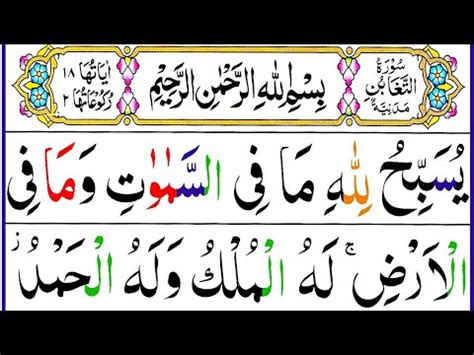 سُوْرَةُ التَّغَابُنِ مَدَنِيَّةٌ
بِسْمِ اللّٰهِ الرَّحْمٰنِ الرَّحِيْمِ
اٰيَاتُهَا ١٨ رُكُوْعَاتُهَا ٢
يُسَبِّحُ لِلّٰهِ مَا فِى السَّمٰوٰتِ وَمَا فِى
الْاَرْضِ ۚ لَهُ الْمُلْكُ وَلَهُ الْحَمْدُ ز